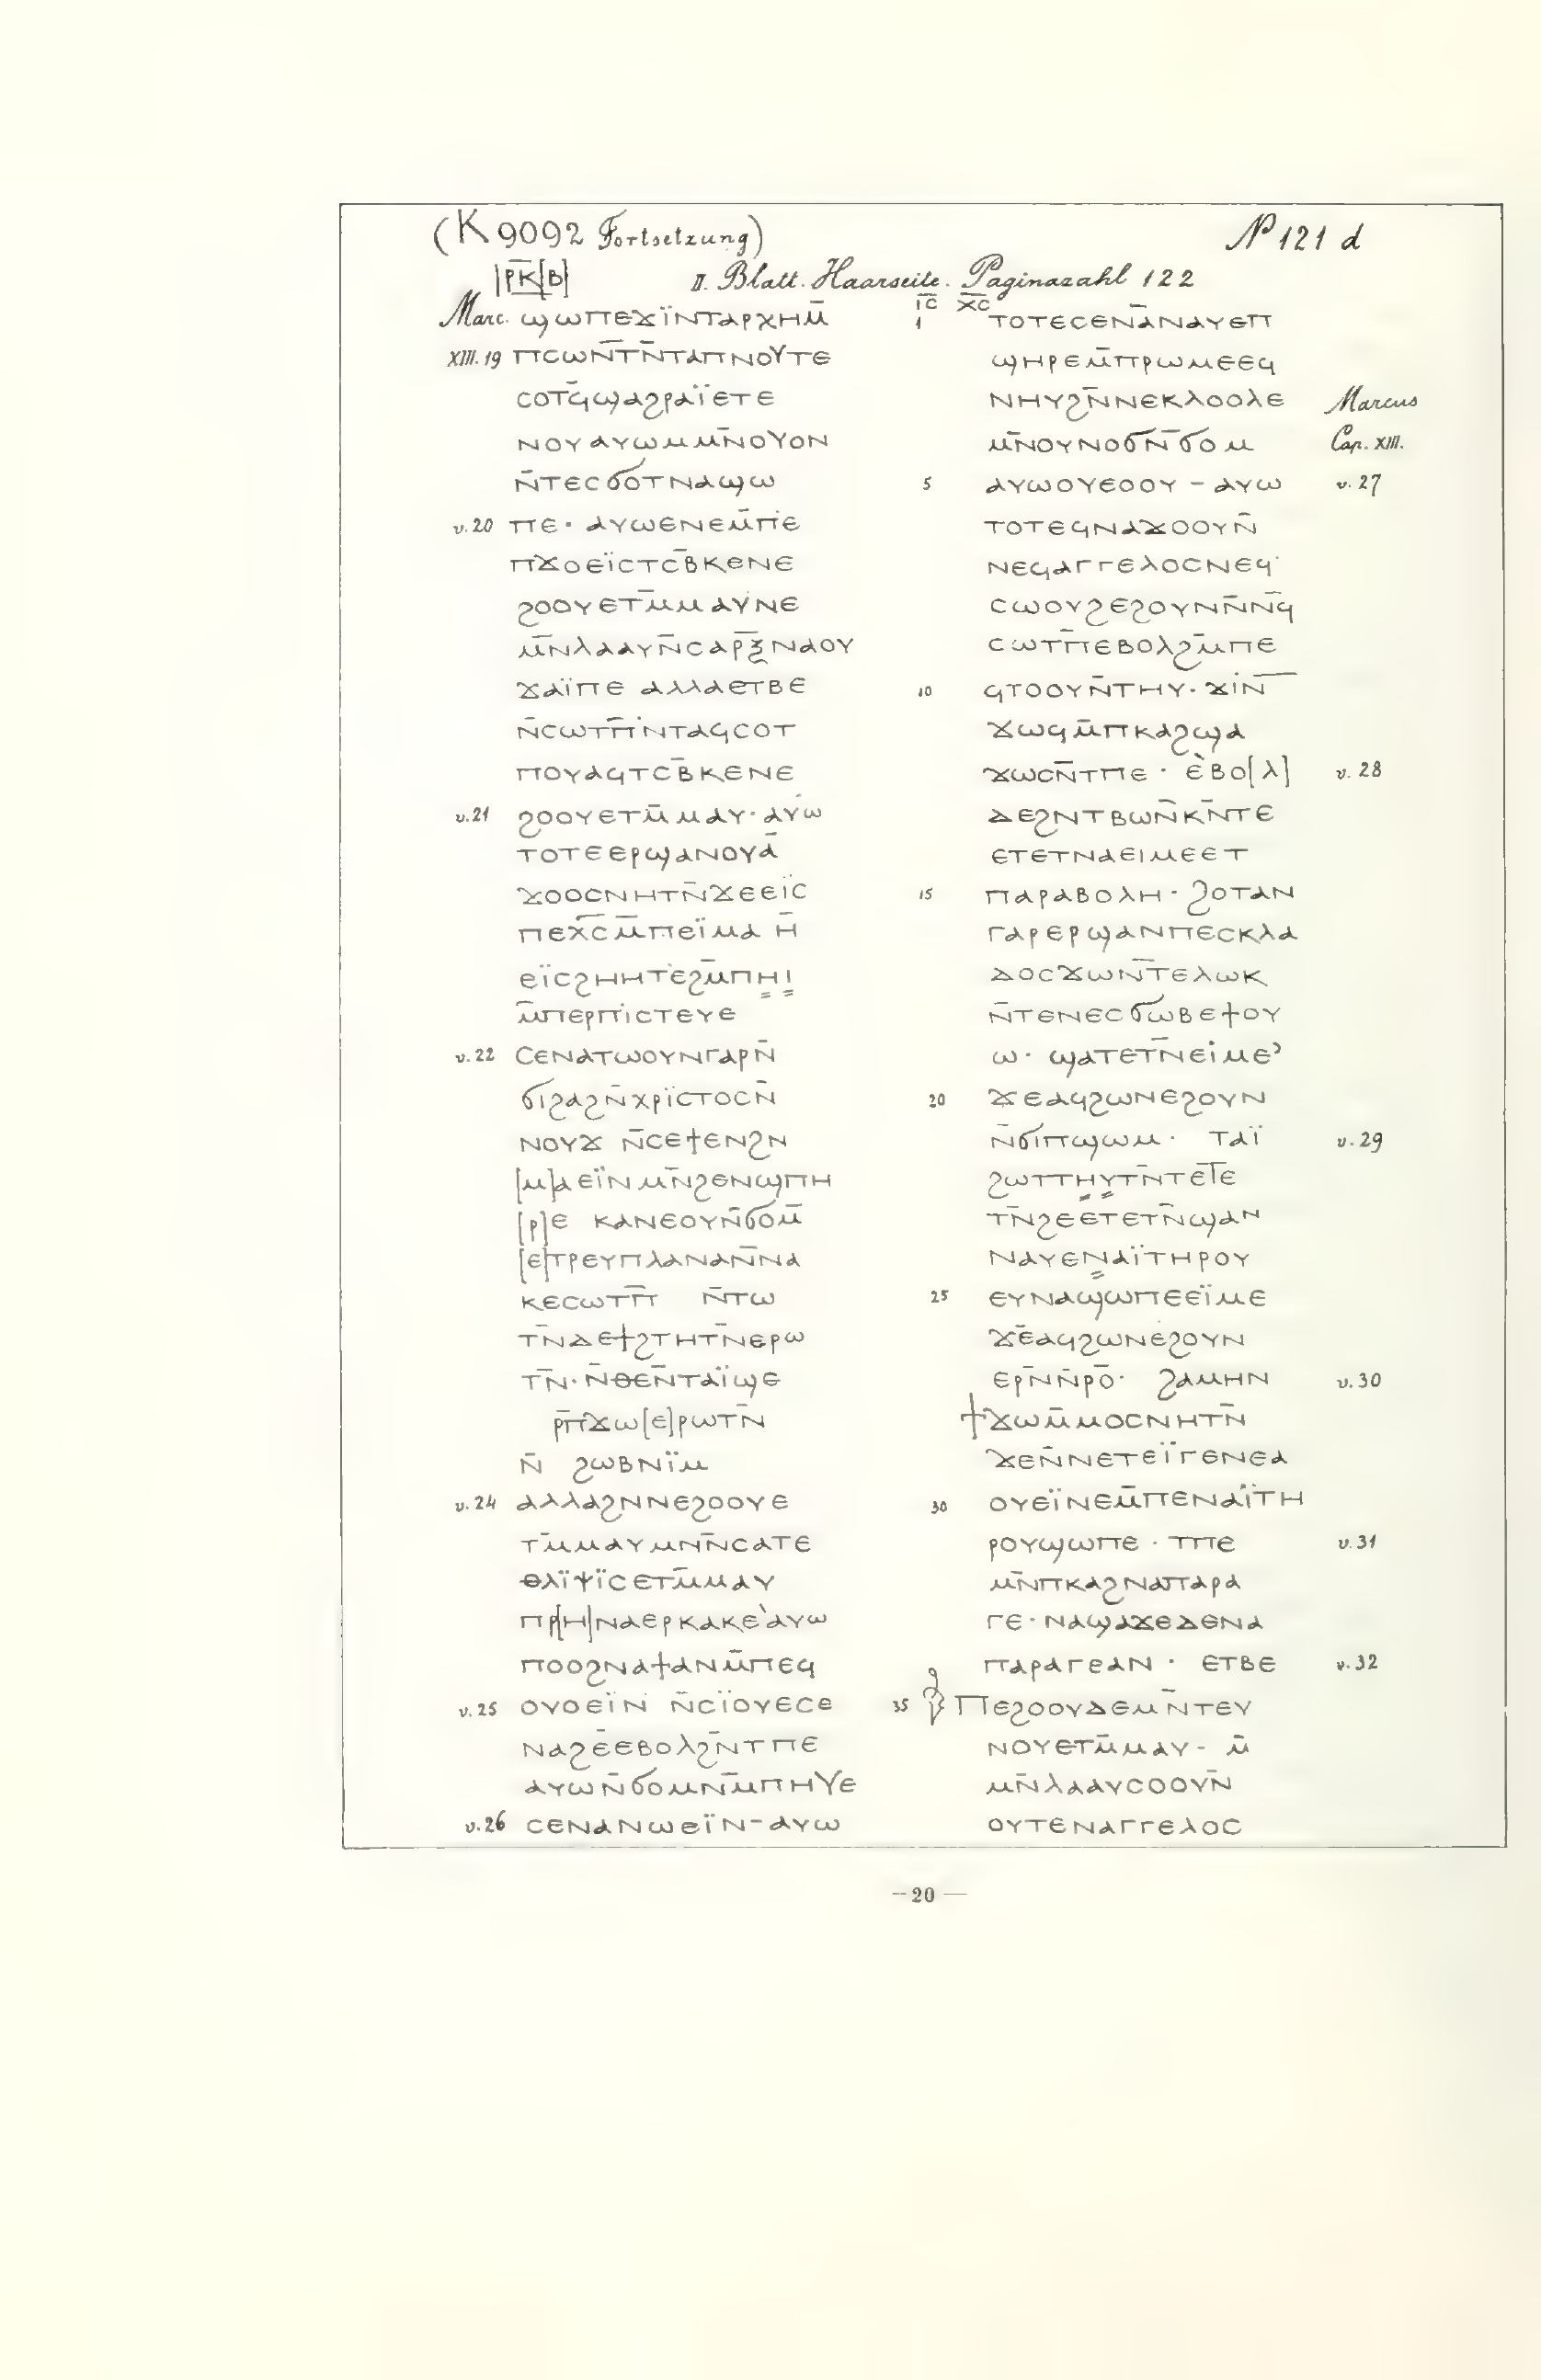 (K 9092 Fortsetzung) № 121 d
|ⲣ̅ⲕ̅[ⲃ] II. Blatt. Haarseite. Paginazahl 122
ⲓ̅ⲥ̅ ⲭ̅ⲥ̅
Marc. ϣⲱⲡⲉϫⲓ̈ⲛⲧⲁⲣⲭⲏⲙ̅
XIII. 19 ⲡⲥⲱⲛ̅ⲧ̅ⲛ̅ⲧⲁⲡⲛⲟⲩⲧⲉ
ⲥⲟⲧϥ̅ϣⲁϩⲣⲁⲓ̈ⲉⲧⲉ
ⲛⲟⲩⲁⲩⲱⲙⲙⲛ̅ⲟⲩⲟⲛ
ⲛ̅ⲧⲉⲥϭⲟⲧⲛⲁϣⲱ
v. 20 ⲡⲉ· ⲁⲩⲱⲉⲛⲉⲙ̅ⲡⲉ
ⲡϫⲟⲉⲓ̈ⲥⲧⲥⲃ̅ⲕⲉⲛⲉ
ϩⲟⲟⲩⲉⲧⲙ̅ⲙⲁⲩⲛⲉ
ⲙ̅ⲛⲗⲁⲁⲩⲛ̅ⲥⲁⲣ̅ⲝⲛⲁⲟⲩ
ϫⲁⲓ̈ⲡⲉ ⲁⲗⲗⲁⲉⲧⲃⲉ
ⲛ̅ⲥⲱⲧⲡ̅ⲛⲧⲁϥⲥⲟⲧ
ⲡⲟⲩⲁϥⲧⲥⲃ̅ⲕⲉⲛⲉ
v. 21 ϩⲟⲟⲩⲉⲧⲙ̅ⲙⲁⲩ· ⲁⲩⲱ
ⲧⲟⲧⲉⲉⲣϣⲁⲛⲟⲩⲁ̅
ϫⲟⲟⲥⲛⲏⲧⲛ̅ϫⲉⲉⲓ̈ⲥ
ⲡⲉⲭ̅ⲥ̅ⲙ̅ⲡⲉⲓ̈ⲙⲁ ⲏ̅
ⲉⲓ̈ⲥϩⲏⲏⲧⲉϩⲙ̅ⲡⲏⲓ
ⲙ̅ⲡⲉⲣⲡⲓⲥⲧⲉⲩⲉ
v. 22 ⲥⲉⲛⲁⲧⲱⲟⲩⲛⲅⲁⲣⲛ̅
ϭⲓϩⲁϩⲛ̅ⲭⲣⲓ̈ⲥⲧⲟⲥⲛ̅
ⲛⲟⲩϫ ⲛ̅ⲥⲉϯⲉⲛϩⲛ
[ⲙ]ⲁⲉⲓ̈ⲛⲙⲛ̅ϩⲉⲛϣⲡⲏ
[ⲣ]ⲉ ⲕⲁⲛⲉⲟⲩⲛ̅ϭⲟⲙ̅
[ⲉ]ⲧⲣⲉⲩⲡⲗⲁⲛⲁⲛ̅ⲛⲁ
ⲕⲉⲥⲱⲧⲡ̅ ⲛ̅ⲧⲱ
ⲧⲛ̅ⲇⲉϯϩⲧⲏⲧⲛ̅ⲉⲣⲱ
ⲧⲛ̅· ⲛ̅ⲑⲉⲛ̅ⲧⲁⲓ̈ϣⲉ
ⲣ̅ⲡϫⲱ[ⲉ]ⲣⲱⲧⲛ̅
ⲛ̅ ϩⲱⲃⲛⲓ̈ⲙ
v. 24 ⲁⲗⲗⲁϩⲛⲛⲉϩⲟⲟⲩⲉ
ⲧⲙ̅ⲙⲁⲩⲙⲛⲛ̅ⲥⲁⲧⲉ
ⲑⲗⲓ̈ⲯⲓ̈ⲥⲉⲧⲙ̅ⲙⲁⲩ
ⲡⲣ[ⲏ]ⲛⲁⲉⲣⲕⲁⲕⲉ̀ⲁⲩⲱ
ⲡⲟⲟϩⲛⲁϯⲁⲛⲙ̅ⲡⲉϥ
v. 25 ⲟⲩⲟⲉⲓ̈ⲛ ⲛ̅ⲥⲓ̈ⲟⲩⲉⲥⲉ
ⲛⲁϩⲉ̅ⲉⲃⲟⲗϩⲛ̅ⲧⲡⲉ
ⲁⲩⲱⲛ̅ϭⲟⲙⲛ̅ⲙ̅ⲡⲏⲩⲉ
v. 26 ⲥⲉⲛⲁⲛⲱⲉⲓ̈ⲛ-ⲁⲩⲱ
1 ⲧⲟⲧⲉⲥⲉⲛⲁ̅ⲛⲁⲩⲉⲡ
ϣⲏⲣⲉⲙ̅ⲡⲣⲱⲙⲉⲉϥ
ⲛⲏⲩϩⲛ̅ⲛⲉⲕⲗⲟⲟⲗⲉ Marcus
ⲙ̅ⲛⲟⲩⲛⲟϭⲛ̅ϭⲟⲙ Cap. XIII.
5 ⲁⲩⲱⲟⲩⲉⲟⲟⲩ - ⲁⲩⲱ v. 27
ⲧⲟⲧⲉϥⲛⲁϫⲟⲟⲩⲛ̅
ⲛⲉϥⲁⲅⲅⲉⲗⲟⲥⲛⲉϥ
ⲥⲱⲟⲩϩⲉϩⲟⲩⲛⲛ̅ⲛ̅ϥ
ⲥⲱⲧⲡ̅ⲉⲃⲟⲗϩⲙ̅ⲡⲉ
10 ϥⲧⲟⲟⲩⲛ̅ⲧⲏⲩ· ϫⲓⲛ̅
ϫⲱϥⲙ̅ⲡⲕⲁϩϣⲁ
ϫⲱⲥⲛ̅ⲧⲡⲉ · ⲉ̀ⲃⲟ[ⲗ] v. 28
ⲇⲉϩⲛⲧⲃⲱⲛ̅ⲕⲛ̅ⲧⲉ
ⲉⲧⲉⲧⲛⲁⲉⲓⲙⲉⲉⲧ
15 ⲡⲁⲣⲁⲃⲟⲗⲏ· ϩⲟⲧⲁⲛ
ⲅⲁⲣⲉⲣϣⲁⲛⲡⲉⲥⲕⲗⲁ
ⲇⲟⲥϫⲱⲛ̅ⲧⲉⲗⲱⲕ
ⲛ̅ⲧⲉⲛⲉⲥϭⲱⲃⲉϯⲟⲩ
ⲱ· ϣⲁⲧⲉⲧⲛ̅ⲉⲓⲙⲉ
20 ϫⲉⲁϥϩⲱⲛⲉϩⲟⲩⲛ
ⲛ̅ϭⲓⲡϣⲱⲙ· ⲧⲁⲓ̈ v. 29
ϩⲱⲧⲧⲏⲩⲧⲛ̅ⲧⲉⲧ̅ⲉ
ⲧⲛ̅ϩⲉⲉⲧⲉⲧⲛ̅ϣⲁⲛ
ⲛⲁⲩⲉⲛⲁⲓ̈ⲧⲏⲣⲟⲩ
25 ⲉⲩⲛⲁϣⲱⲡⲉⲉⲓ̈ⲙⲉ
ϫⲉ̅ⲁϥϩⲱⲛⲉϩⲟⲩⲛ
ⲉⲣⲛ̅ⲛ̅ⲣⲟ̅· ϩⲁⲙⲏⲛ v. 30
ϯϫⲱⲙ̅ⲙⲟⲥⲛⲏⲧⲛ̅
ϫⲉⲛ̅ⲛⲉⲧⲉⲓ̈ⲅⲉⲛⲉⲁ
30 ⲟⲩⲉⲓ̈ⲛⲉⲙ̅ⲡⲉⲛⲁⲓ̈ⲧⲏ
ⲣⲟⲩϣⲱⲡⲉ · ⲧⲡⲉ v. 31
ⲙⲛ̅ⲡⲕⲁϩⲛⲁⲡⲁⲣⲁ
ⲅⲉ· ⲛⲁϣⲁϫⲉⲇⲉⲛⲁ
ⲡⲁⲣⲁⲅⲉⲁⲛ · ⲉⲧⲃⲉ v. 32
35 Ⲡⲉϩⲟⲟⲩⲇⲉⲙⲛ̅ⲧⲉⲩ
ⲛⲟⲩⲉⲧⲙ̅ⲙⲁⲩ- ⲙ̅
ⲙⲛ̅ⲗⲁⲁⲩⲥⲟⲟⲩⲛ̅
ⲟⲩⲧⲉⲛⲁⲅⲅⲉⲗⲟⲥ
— 20 —